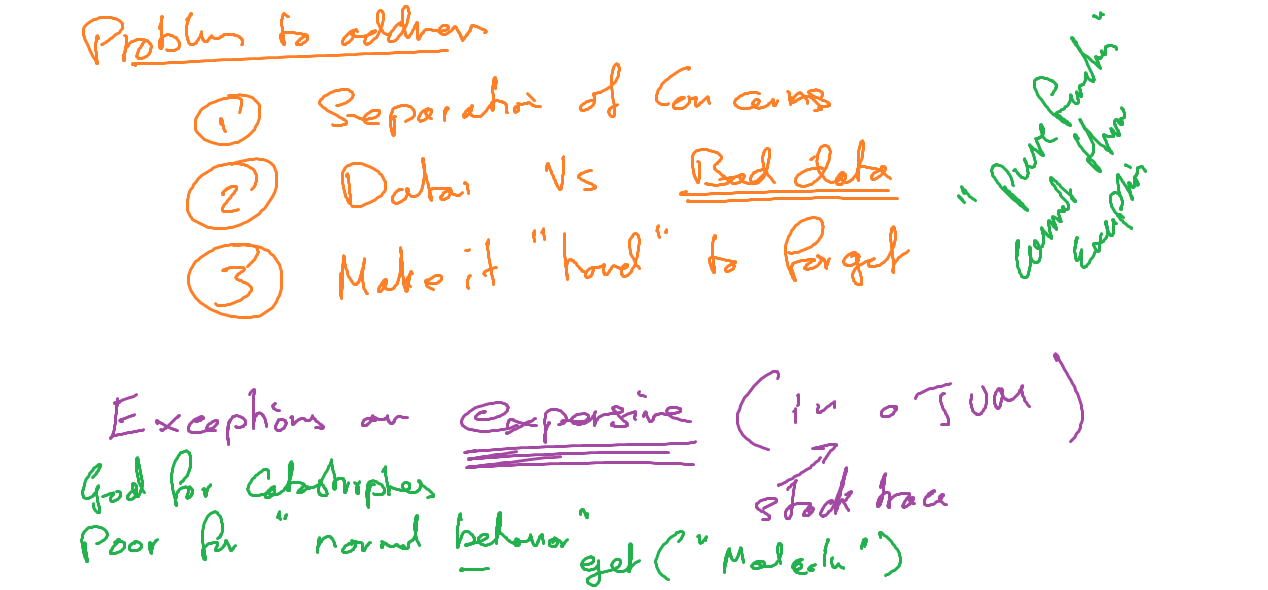 Problems to address
① Separation of Concerns
② Data Vs Bad data
③ Make it "hard" to forget
"Pure Functions"
cannot throw
Exception
Exceptions are expensive (in a JVM)
stack trace
Good for Catastrophes
Poor for "normal behavior"
get("Malcolm")